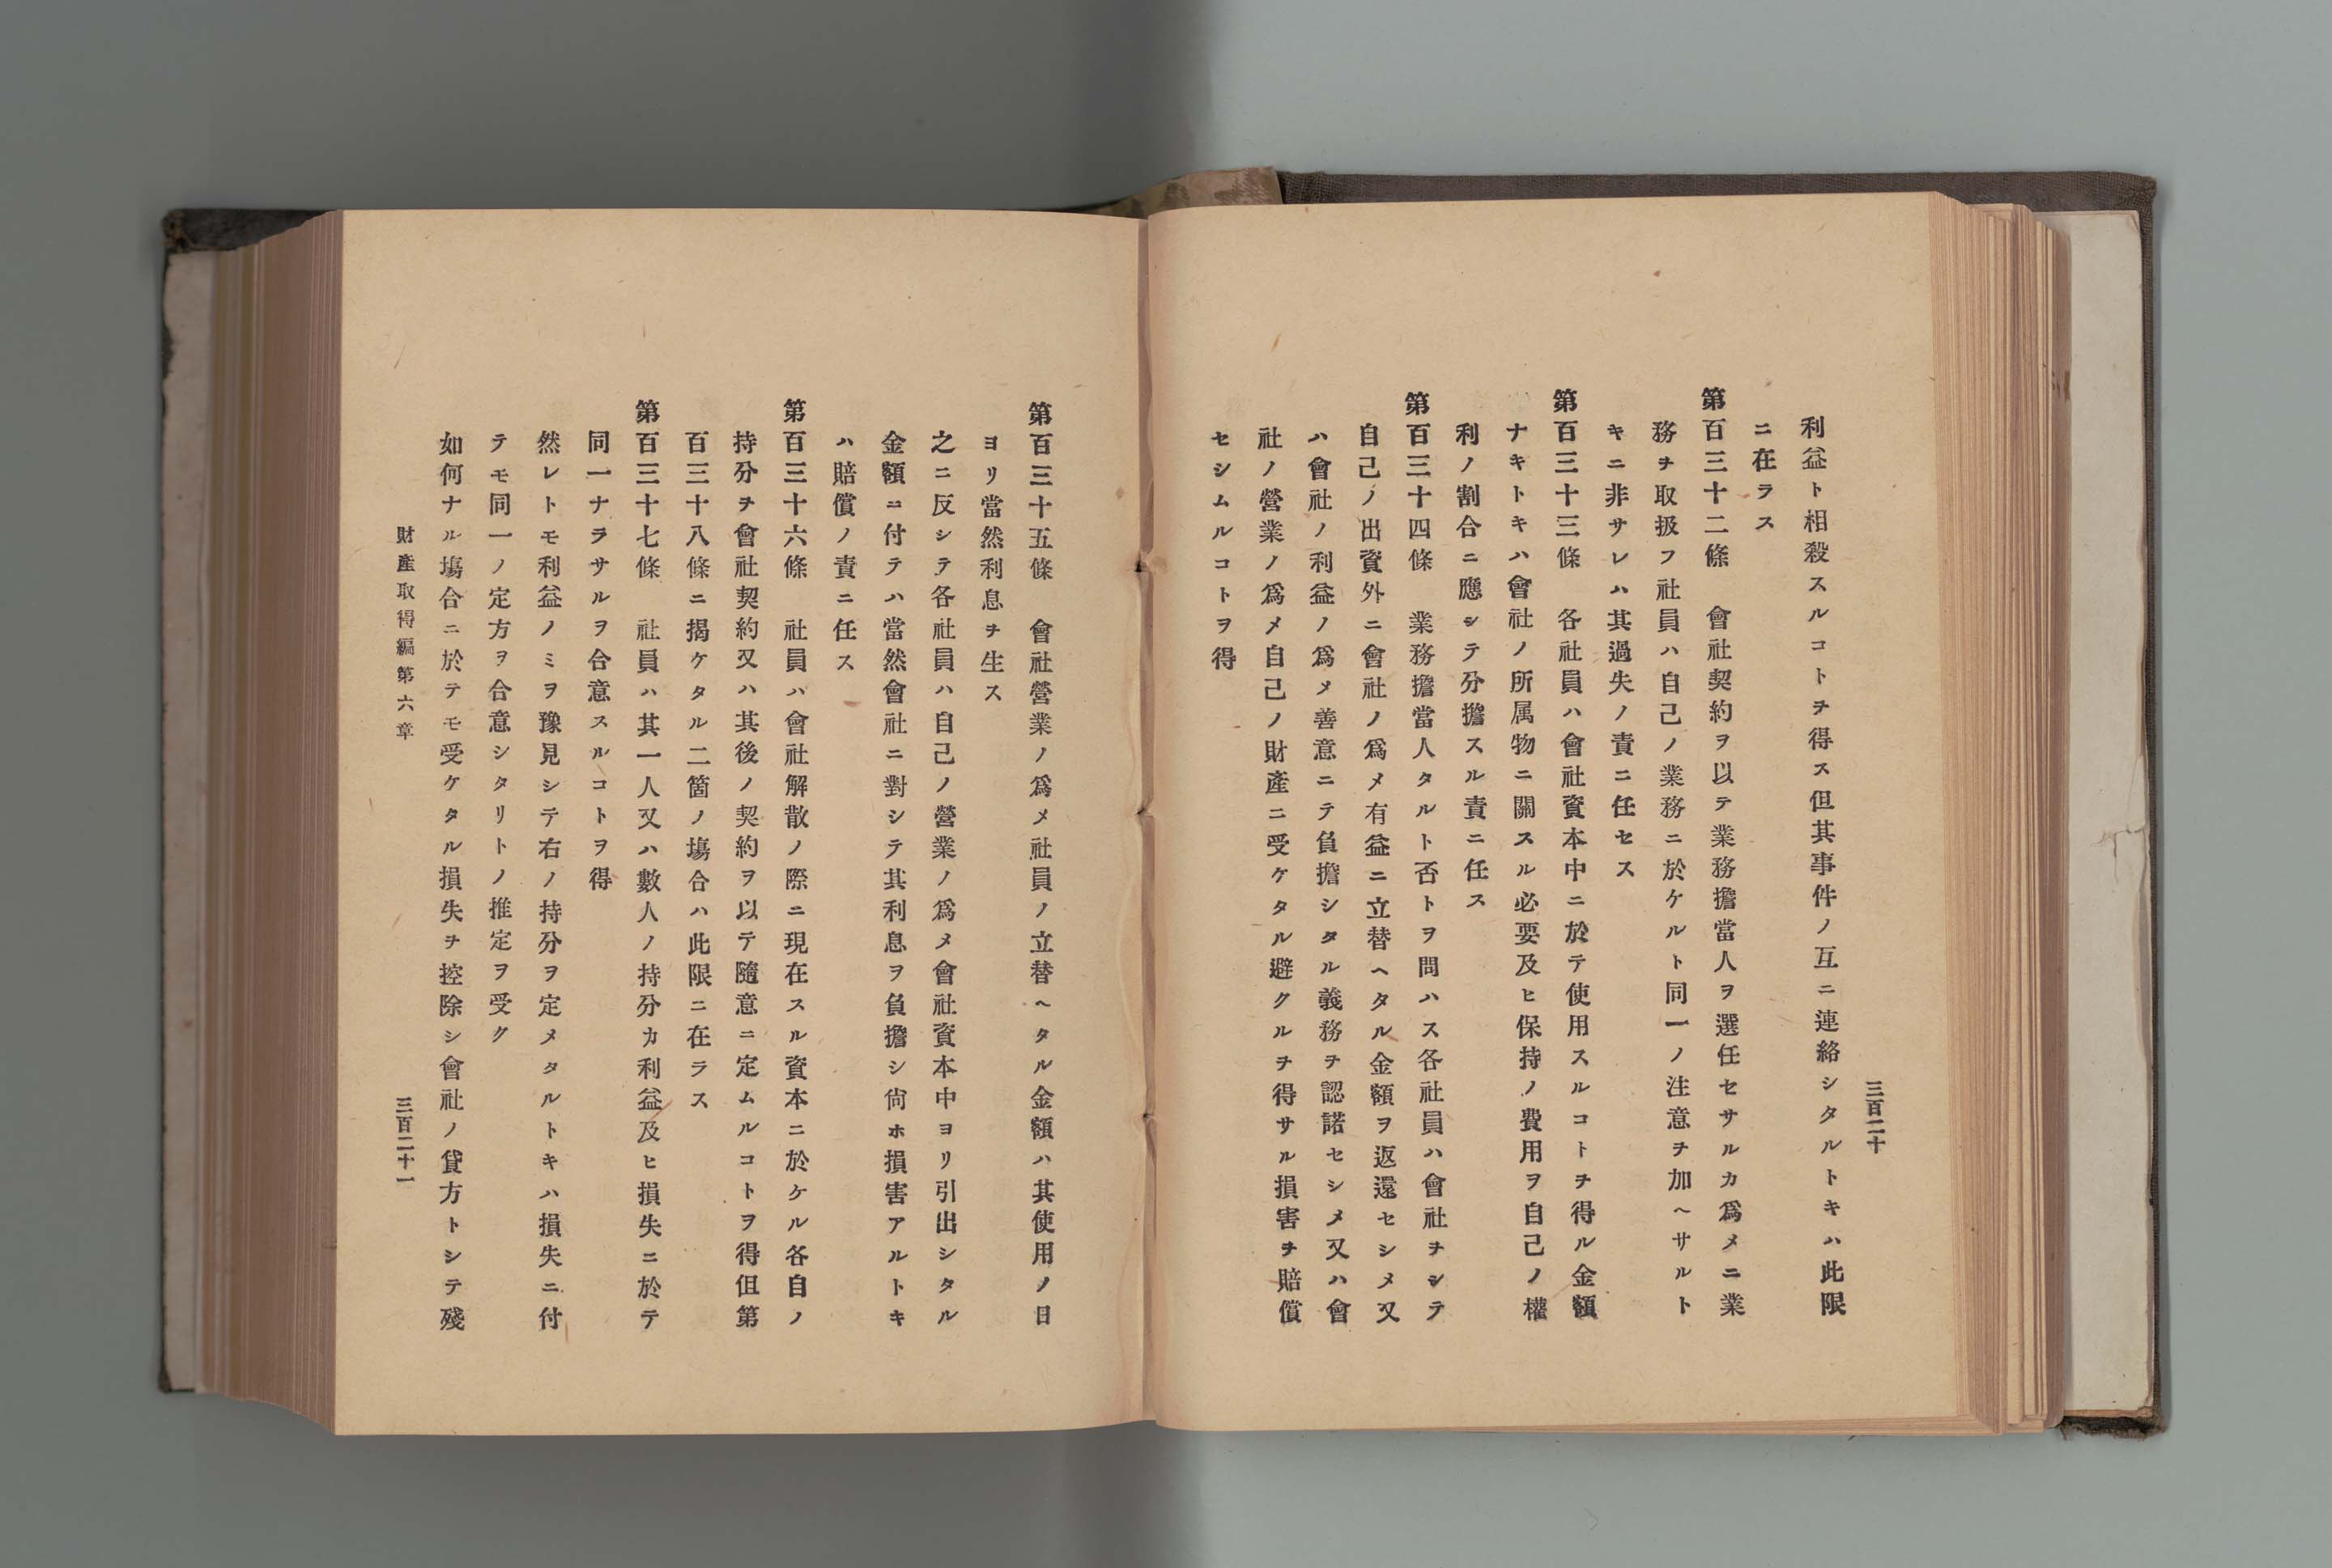 三百二十
利益ト相殺スルコトヲ得ス但其事件ノ互ニ連絡シタルトキハ此限
ニ在ラス
第百三十二條　會社契約ヲ以テ業務擔當人ヲ選任セサルカ爲メニ業
務ヲ取扱フ社員ハ自己ノ業務ニ於ケルト同一ノ注意ヲ加ヘサルト
キニ非サレハ其過失ノ責ニ任セス
第百三十三條　各社員ハ會社資本中ニ於テ使用スルコトヲ得ル金額
ナキトキハ會社ノ所属物ニ關スル必要及ヒ保持ノ費用ヲ自己ノ權
利ノ割合ニ應シテ分擔スル責ニ任ス
第百三十四條　業務擔當人タルト否トヲ問ハス各社員ハ會社ヲシテ
自己ノ出資外ニ會社ノ爲メ有益ニ立替ヘタル金額ヲ返還セシメ又
ハ會社ノ利益ノ爲メ善意ニテ負擔シタル義務ヲ認諾セシメ又ハ會
社ノ營業ノ爲メ自己ノ財產ニ受ケタル避クルヲ得サル損害ヲ賠償
セシムルコトヲ得
第百三十五條　會社營業ノ爲メ社員ノ立替ヘタル金額ハ其使用ノ日
ヨリ當然利息ヲ生ス
之ニ反シテ各社員ハ自己ノ營業ノ爲メ會社資本中ヨリ引出シタル
金額ニ付テハ當然會社ニ對シテ其利息ヲ負擔シ尙ホ損害アルトキ
ハ賠償ノ責ニ任ス
第百三十六條　社員ハ會社解散ノ際ニ現在スル資本ニ於ケル各自ノ
持分ヲ會社契約又ハ其後ノ契約ヲ以テ隨意ニ定ムルコトヲ得但第
百三十八條ニ揭ケタル二箇ノ塲合ハ此限ニ在ラス
第百三十七條　社員ハ其一人又ハ數人ノ持分カ利益及ヒ損失ニ於テ
同一ナラサルヲ合意スルコトヲ得
然レトモ利益ノミヲ豫見シテ右ノ持分ヲ定メタルトキハ損失ニ付
テモ同一ノ定方ヲ合意シタリトノ推定ヲ受ク
如何ナル塲合ニ於テモ受ケタル損失ヲ控除シ會社ノ貸方トシテ殘
財產取得編第六章
三百二十一